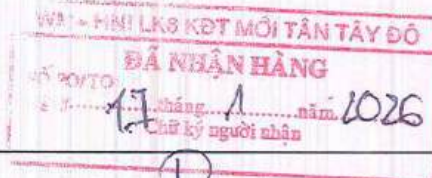 WM - HNI LK8 KĐT MỚI TÂN TÂY ĐÔ
ĐÃ NHẬN HÀNG
SỐ PO/TO
17 tháng 1 năm 2026
Chữ ký người nhận
1